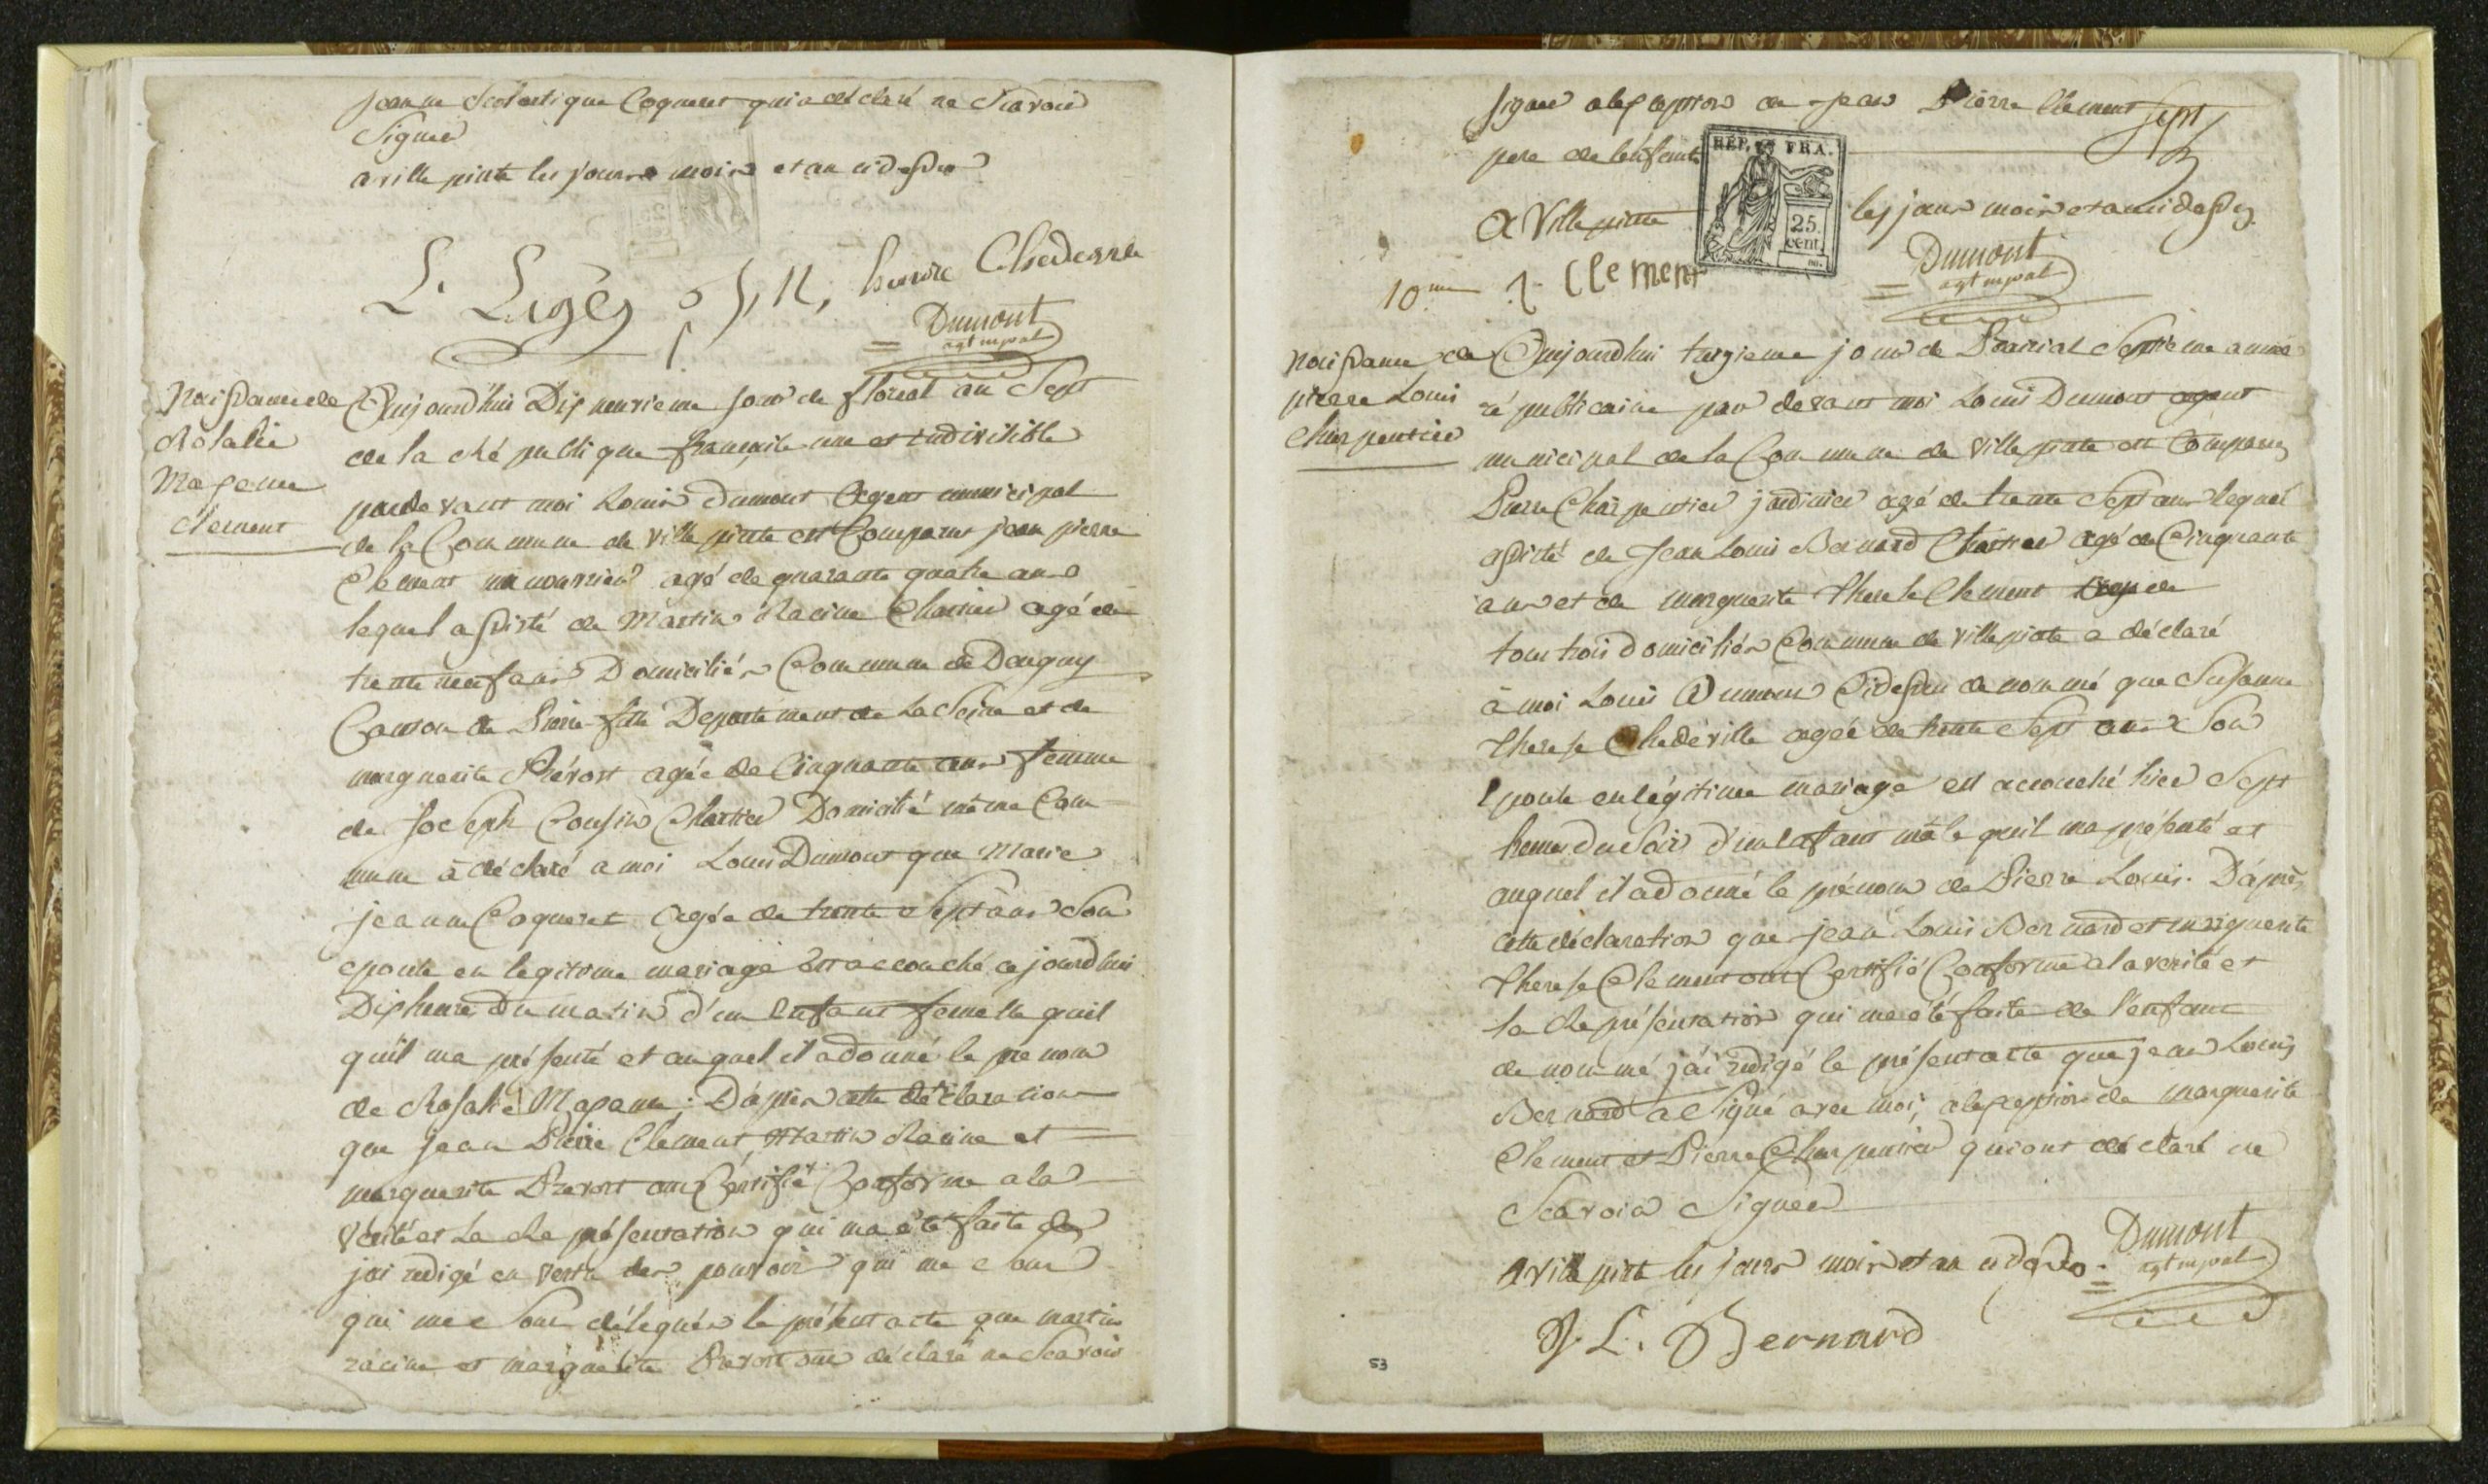 jeanne Scolastique Coqueret qui a déclaré ne Scavoir
Signer
a ville pinte les jours mois et an cidessus
L. Ligés J, N, heurre Chedeville
Dumont
agt mpal
Naissance de
Rosalie
Maxenne
Clement
Aujourd'hui Dix neuvieme jour de floreal an Sept
de la Ré publique française une et indivisible
pardevant moi Louis Dumont Agent municipal
de la Commune de ville pinte est Comparus jean pierre
Clement manouvrier agé de quarante quatre ans
lequel assisté de Martin Racine Chartier agé de
trente neuf ans Domiciliés Commune de Dougny
Canton de Pierre fitte Departement de La Seine et de
marguerite Prévost agée de Cinquante ans femme
de Joseph Cousin Chartier Domicilié même Com
mune à déclaré a moi Louis Dumont que Marie
jeanne Coqueret Agée de trente Sept ans Son
epouse en legitime mariage Est accouché ce jourd'hui
Dix heure Du matin d'un Enfant femelle quil
quil ma présenté et auquel il a donné le prenom
de Rosalie Maxanne; D'après cette déclaration
que jean Pierre Clement, Martin Racine et
marguerite Prevost ont Certifié Conforme a la
vérité et La Re présentation qui ma été faite
jai redigé en vertu des pouvoir qui me sont
qui me Sont délégués le présent acte que martin
racine et marguerite Prevost ont déclaré ne Scavoir
signer a lexception de jean Pierre Clement
pere de lenfant
Sept
REP. FRA.
25
cent.
A Ville pinte les jours mois et an cidessus
Dumont
agt mpal
10me J. Clement
Naissance de
pierre Louis
Charpentier
Aujourd'hui treizieme jour de Prairial Septieme année
républicaine par devant moi Louis Dumont agent
municipal de la Commune de Villepinte est Comparus
Pierre Charpentier jardinier agé de trente Sept ans lequel
assisté de Jean Louis Bernard Chartier agé de Cinquante
ans et de marguerite Therese Clement
tous trois domiciliés Commune de villepinte a déclaré
à moi Louis Dumont Cidessus denommé que Susanne
Therese Chedeville agée de trente Sept ans Son
Epouse en légitime mariage est accouché hier Sept
heures du Soir d'un Enfant mâle quil ma présenté et
auquel il a donné le prénom de Pierre Louis. D'après
cette déclaration que jean Louis Bernard et marguerite
Therese Clement ont Certifié Conforme a la verité et
la Représentation qui ma été faite de l'enfant
denommé j'ai redigé le présent acte que jean Louis
Bernard a Signé avec moi, a lexception de marguerite
Clement et Pierre Charpentier qui ont déclaré ne
Scavoir Signer
A ville pinte les jours mois et an cidessus.
Dumont
agt mpal
J. L. Bernard
53